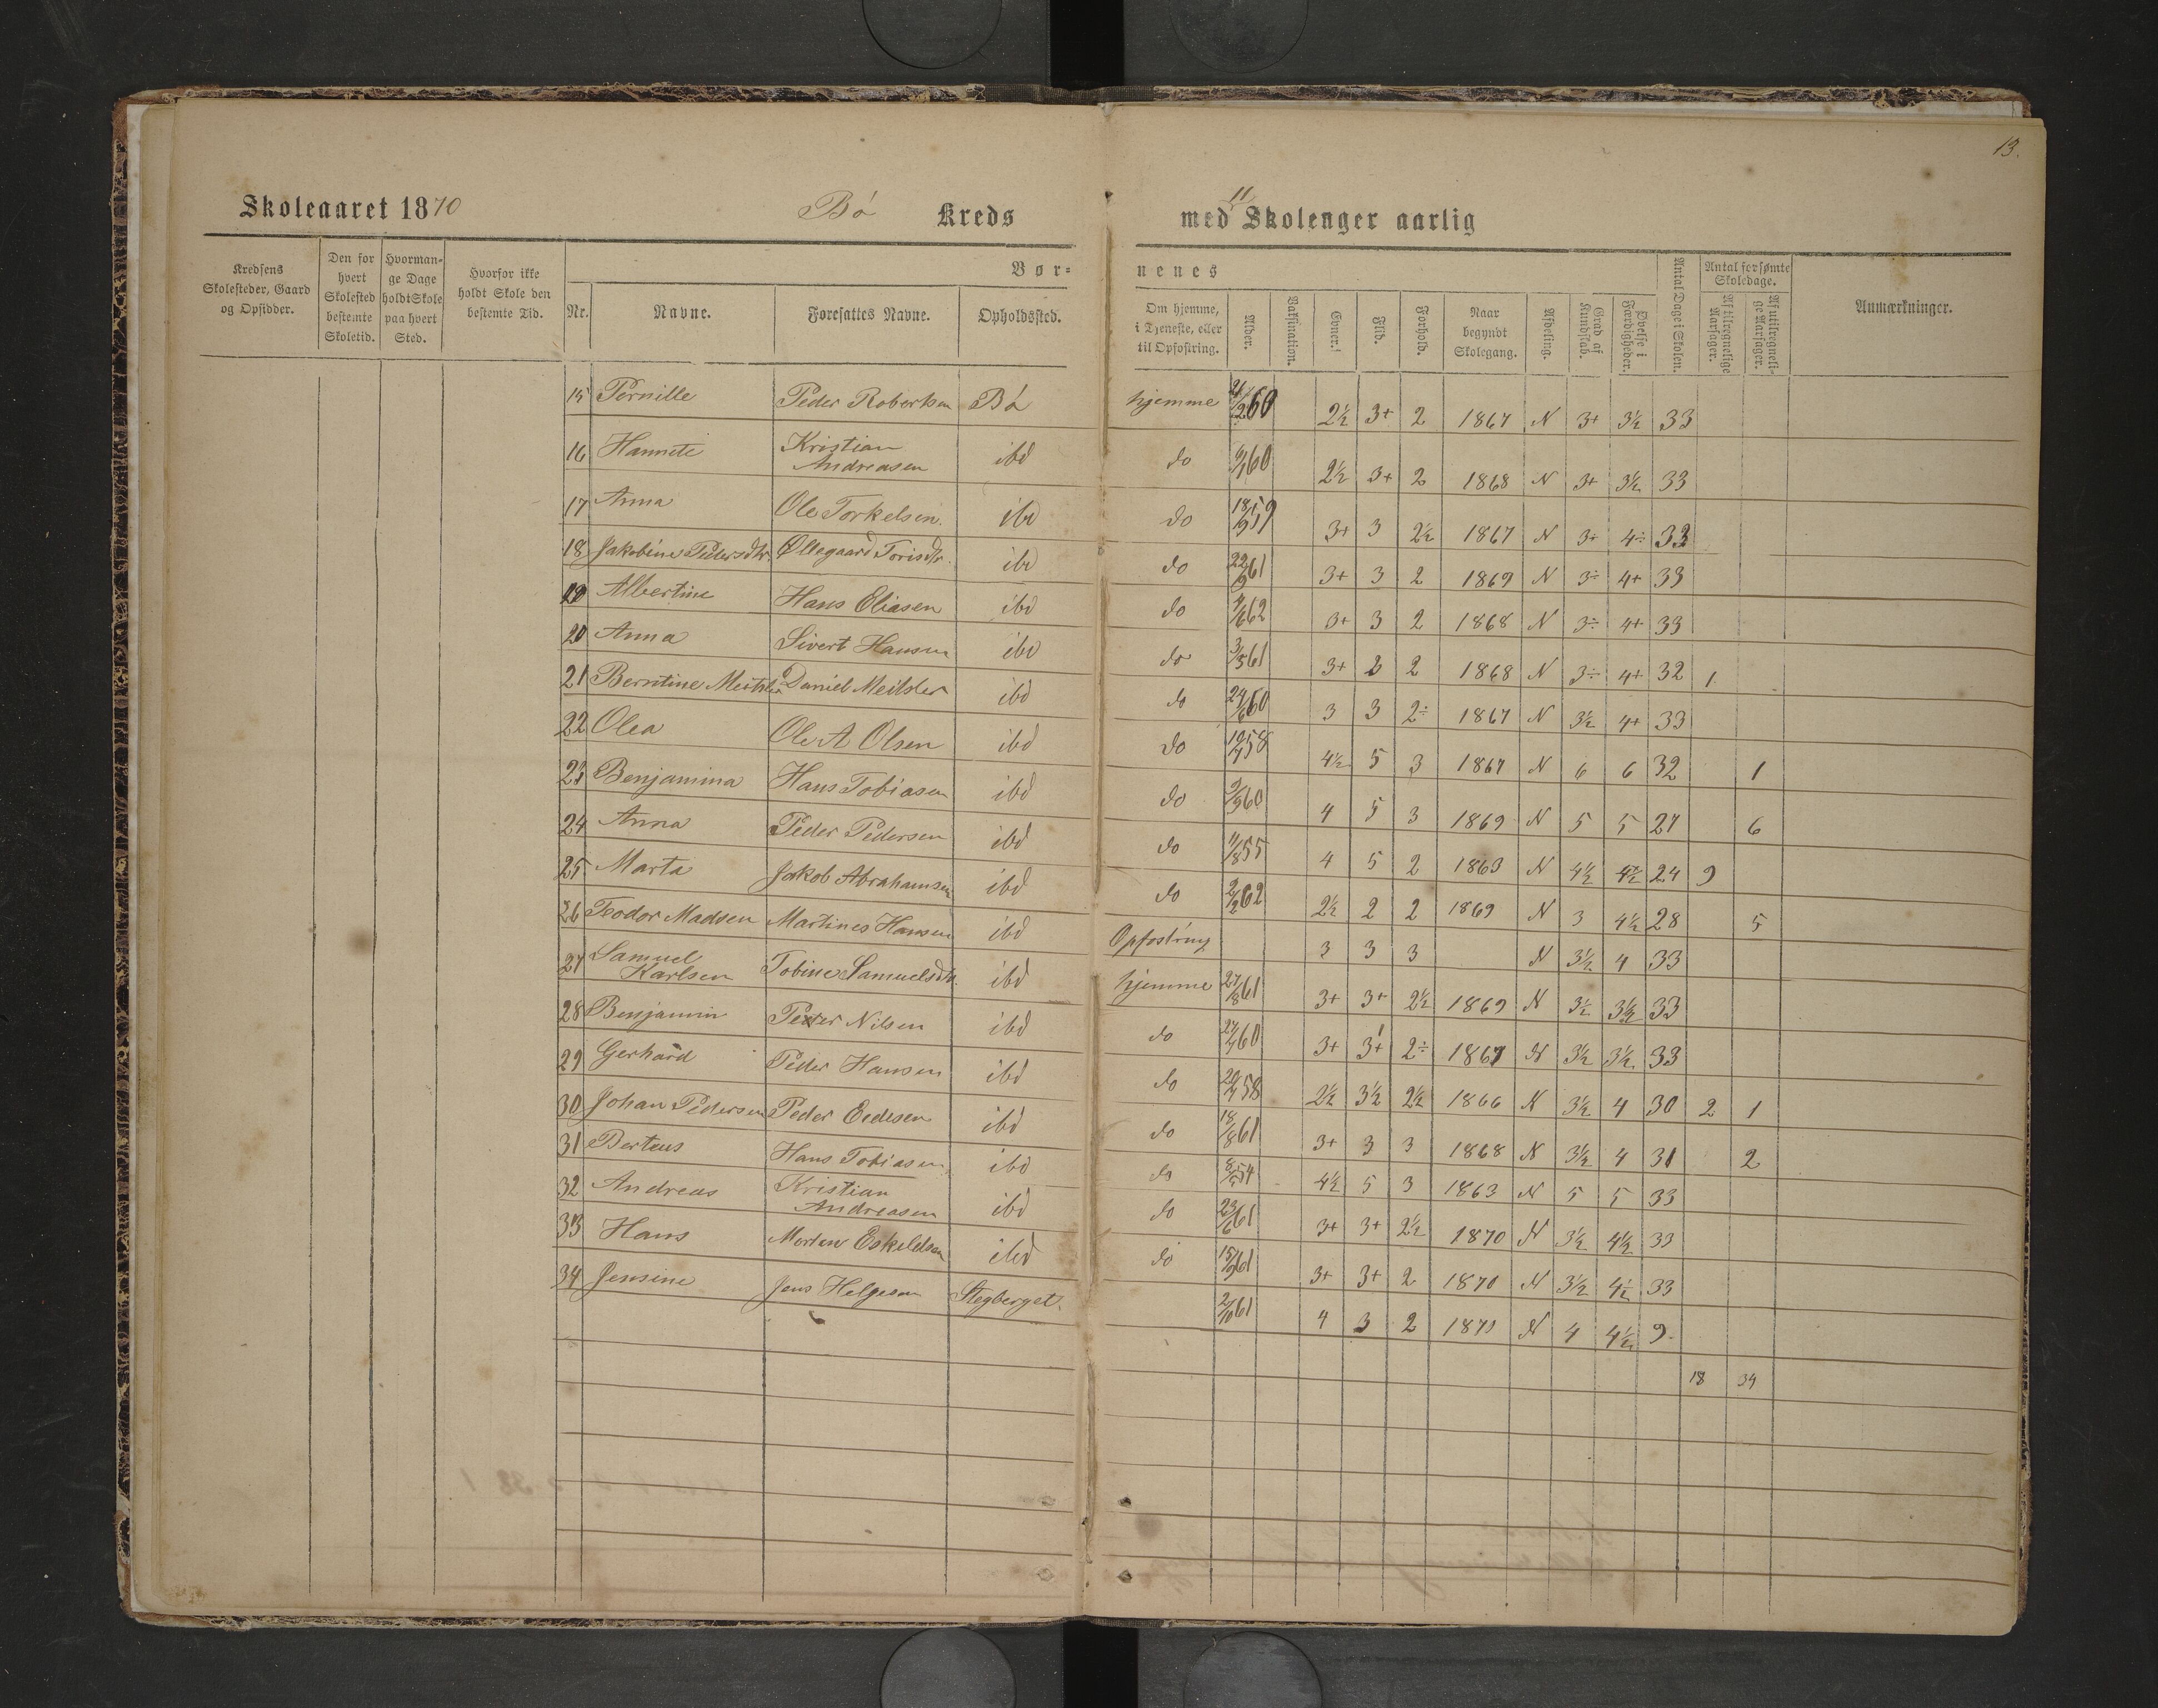 13.
Skoleaaret 1870 Bø Kreds med 11 Skolenger aarlig
Kredsens Skolesteder, Gaard og Opsidder.
Den for hvert Skolested bestemte Skoletid.
Hvormange Dage holdt Skole paa hvert Sted.
Hvorfor ikke holdt Skole den bestemte Tid.
Børnenes
Nr. Navne. Foresattes Navne. Opholdssted.
Om hjemme, i Tjeneste, eller til Opfostring.
Alder. Vaksination. Evner. Flid. Forhold.
Naar begyndt Skolegang.
Afdeling. Grad af Kundskab. Øvelse i Færdigheder.
Antal Dage i Skolen.
Antal forsømte Skoledage.
Af tilregnelige Aarsager. Af utilregnelige Aarsager.
Anmærkninger.
15 Pernille Peder Robertsen Bø hjemme 21/2 60 2½ 3+ 2 1867 N 3+ 3½ 33
16 Hannete Kristian Andreasen ibd do 60 2½ 3+ 2 1868 N 3+ 3½ 33
17 Anna Ole Torkelsen. ibd do 59 3+ 3 2½ 1867 N 3÷ 4÷ 33
18 Jakobine Pedersdtr. Øllegaard Torisdtr. ibd do 22/9 61 3+ 3 2 1869 N 3÷ 4+ 33
19 Albertine Hans Eliasen ibd do 4/6 62 3+ 3 2 1868 N 3÷ 4+ 33
20 Anna Sivert Hansen ibd do 3/5 61 3+ 3 2 1868 N 3÷ 4+ 32 1
21 Berntine Meitsler Daniel Meitsler ibd do 24/6 60 3 3 2÷ 1867 N 3½ 4+ 33
22 Olea Ole A Olsen ibd do 58 4½ 5 3 1867 N 6 6 32 1
23 Benjamina Hans Tobiasen ibd do 60 4 5 3 1869 N 5 5 27 6
24 Anna Peder Pedersen ibd do 11/8 55 4 5 2 1863 N 4½ 4½ 24 9
25 Marta Jakob Abrahamsen ibd do 2/2 62 2½ 2 2 1869 N 3 4½ 28 5
26 Teodor Madsen Martines Hansen ibd Opfostring 3 3 3 N 3½ 4 33
27 Samuel Karlsen Tobine Samuelsdtr. ibd hjemme 27/8 61 3+ 3+ 2½ 1869 N 3½ 3½ 33
28 Benjamin Peder Nilsen ibd do 60 3+ 3+ 2÷ 1867 N 3½ 3½ 33
29 Gerhard Peder Hansen ibd do 58 2½ 3½ 2½ 1866 N 3½ 4 30 2 1
30 Johan Pedersen Peder Eedesen ibd do 18/8 61 3+ 3 3 1868 N 3½ 4 31 2
31 Berteus Hans Tobiasen ibd do 54 4½ 5 3 1863 N 5 5 33
32 Andreas Kristian Andreasen ibd do 23/6 61 3+ 3+ 2½ 1870 N 3½ 4½ 33
33 Hans Morten Eskeldsen ibd do 15/9 61 3+ 3+ 2 1870 N 3½ 4½ 33
34 Jensine Jens Helgesen Stegberget. 2/10 61 4 3 2 1870 N 4 4½ 9.
18 34